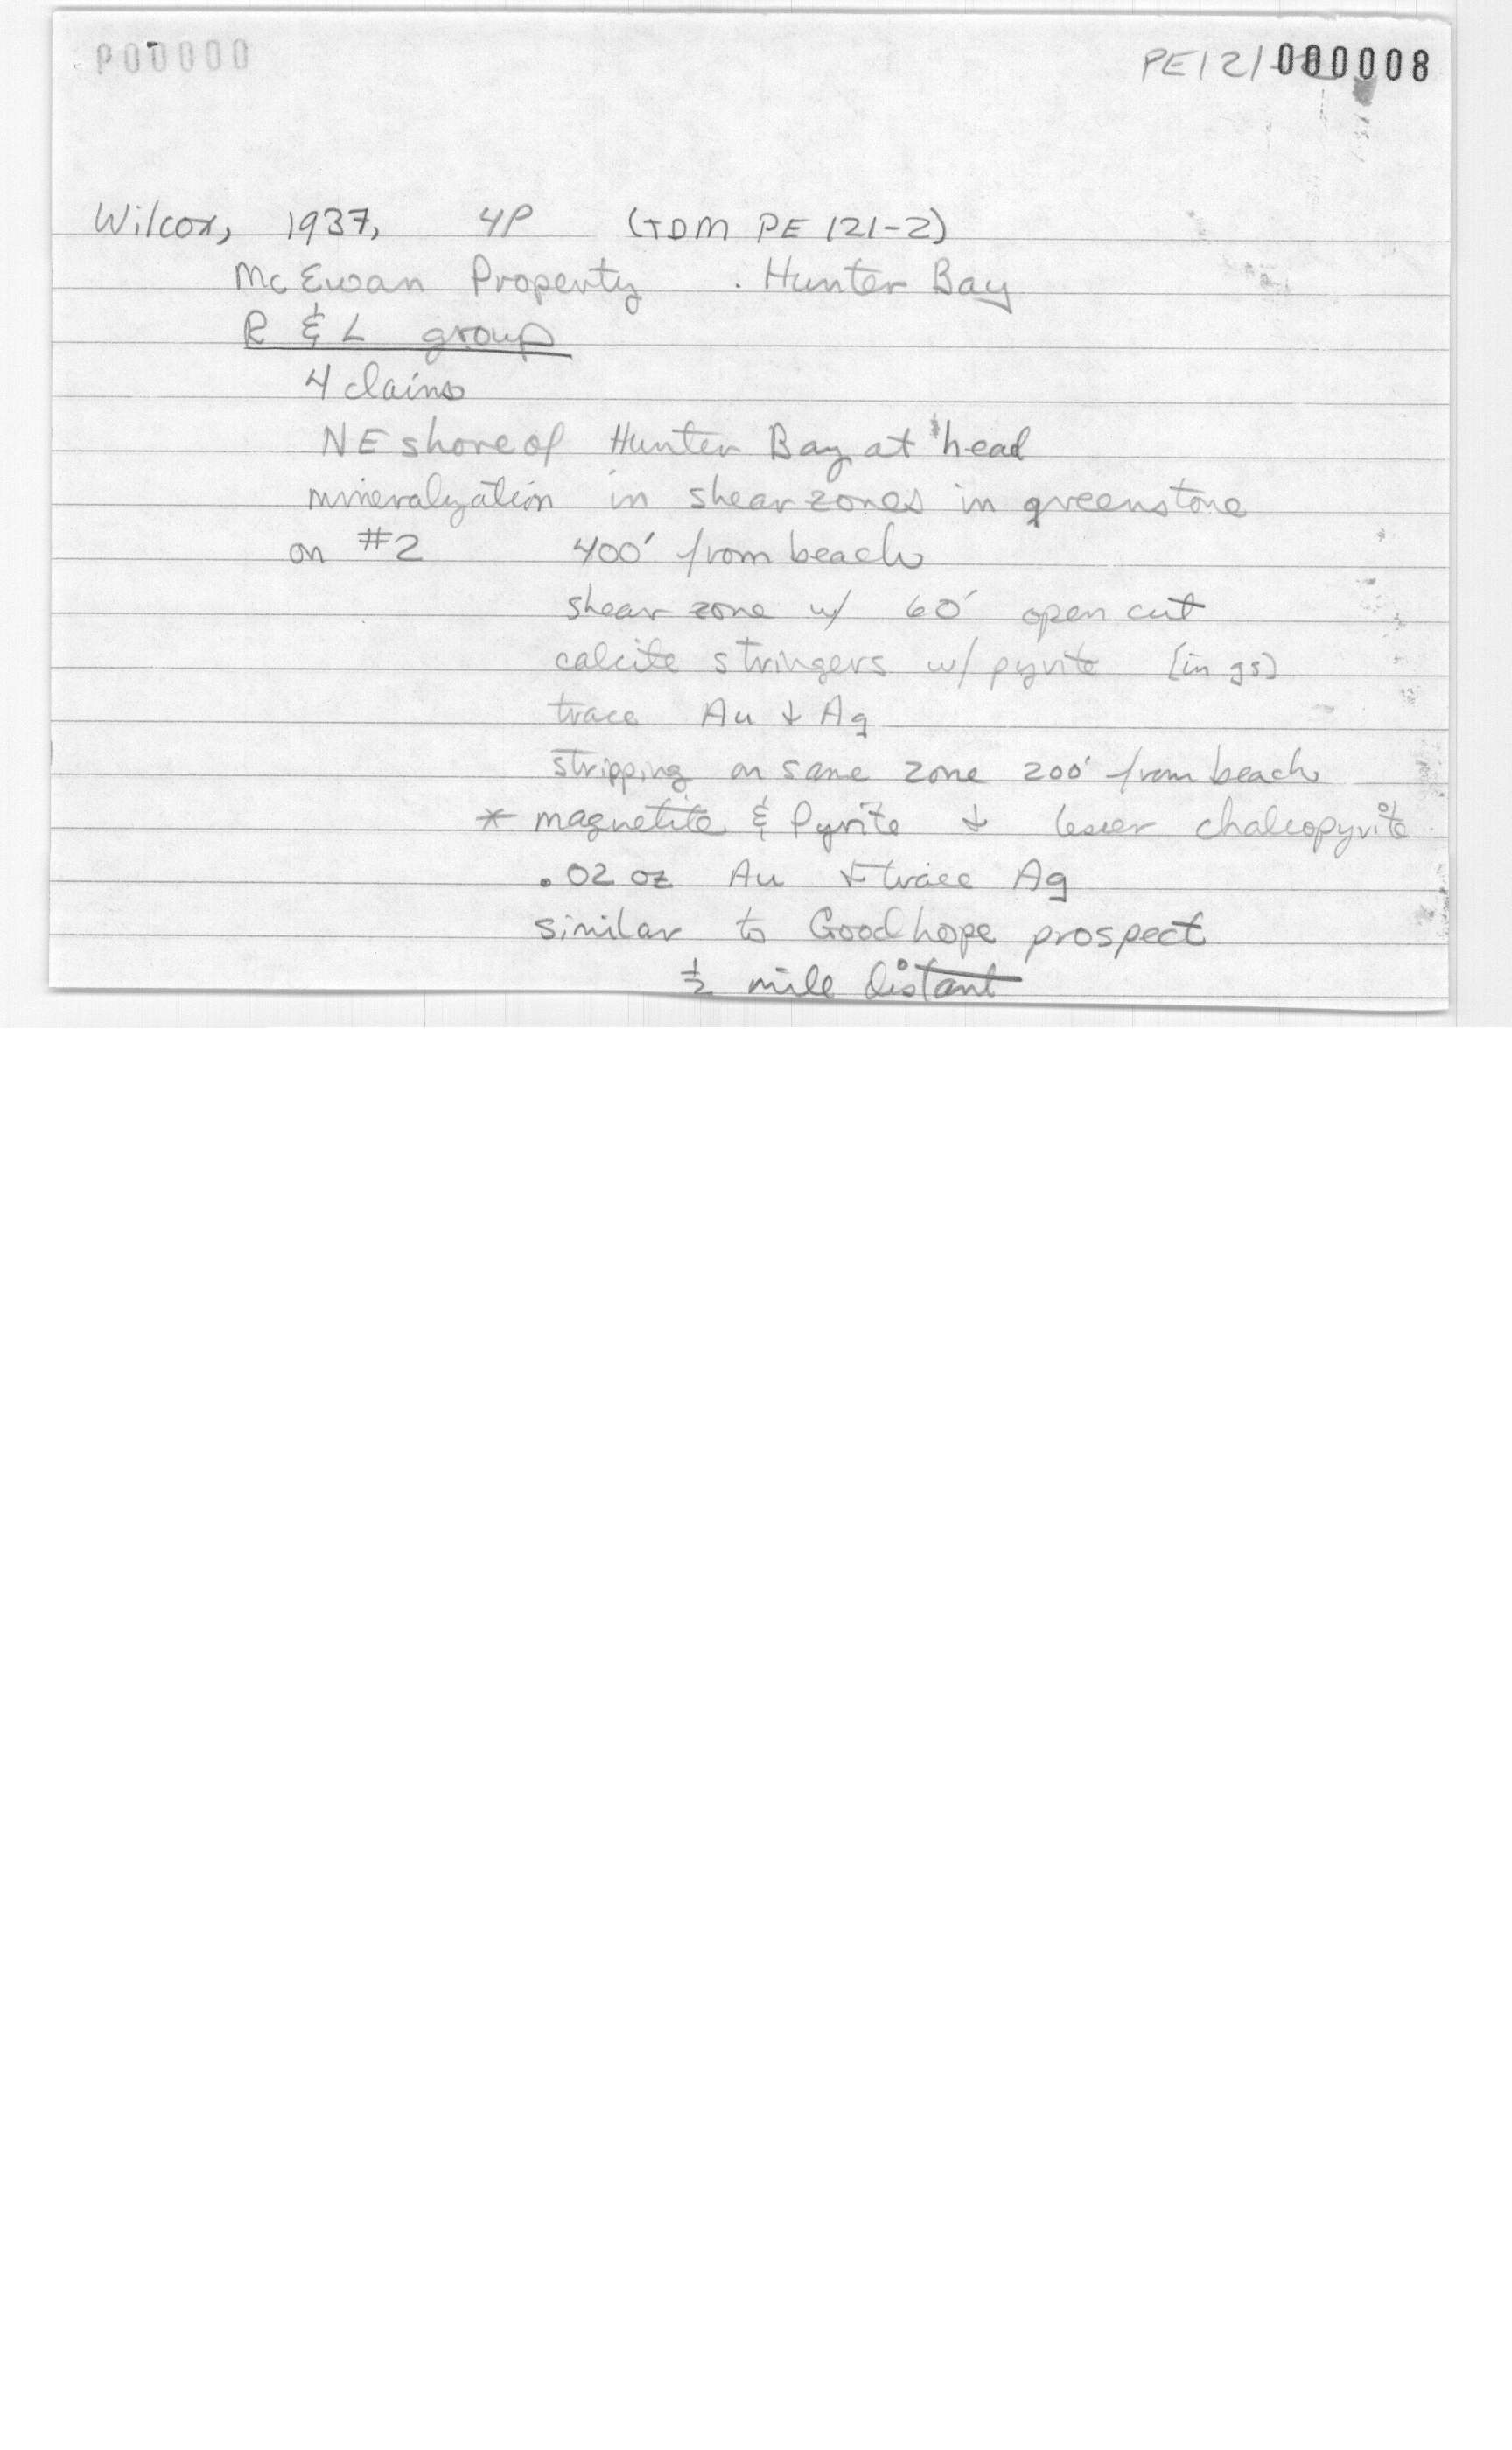 P00000
PE121 000008
Wilcox, 1937, 4P (TDM PE 121-2)
McEwan Property . Hunter Bay
R & L group
4 claims
NE shore of Hunter Bay at head
mineralyzation in shear zones in greenstone
on #2 400' from beach
shear zone w/ 60' open cut
calcite stringers w/ pyrite [in gs]
trace Au + Ag
stripping on same zone 200' from beach
* magnetite & Pyrite + lesser chalcopyrite
.02 oz Au + trace Ag
similar to Goodhope prospect
½ mile distant